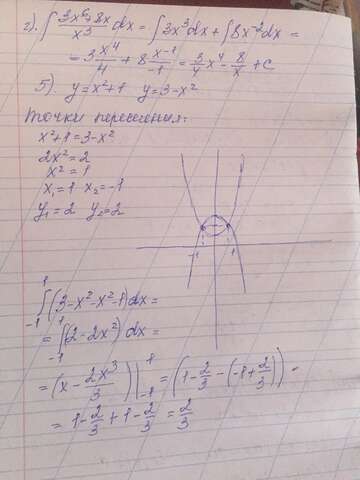 г). ∫ (3x⁶+8x)/x³ dx = ∫3x³dx + ∫8x⁻²dx =
= 3 x⁴/4 + 8 x⁻¹/-1 = 3/4 x⁴ - 8/x + C
5). y=x²+1 y=3-x²
Точки пересечения:
x²+1=3-x²
2x²=2
x²=1
x₁=1 x₂=-1
y₁=2 y₂=2
-1 1
∫₋₁¹ (3-x²-x²-1)dx=
= ∫₋₁¹ (2-2x²)dx =
= (x - 2x³/3) |₋₁¹ = (1 - 2/3 - (-1 + 2/3)) =
= 1 - 2/3 + 1 - 2/3 = 2/3